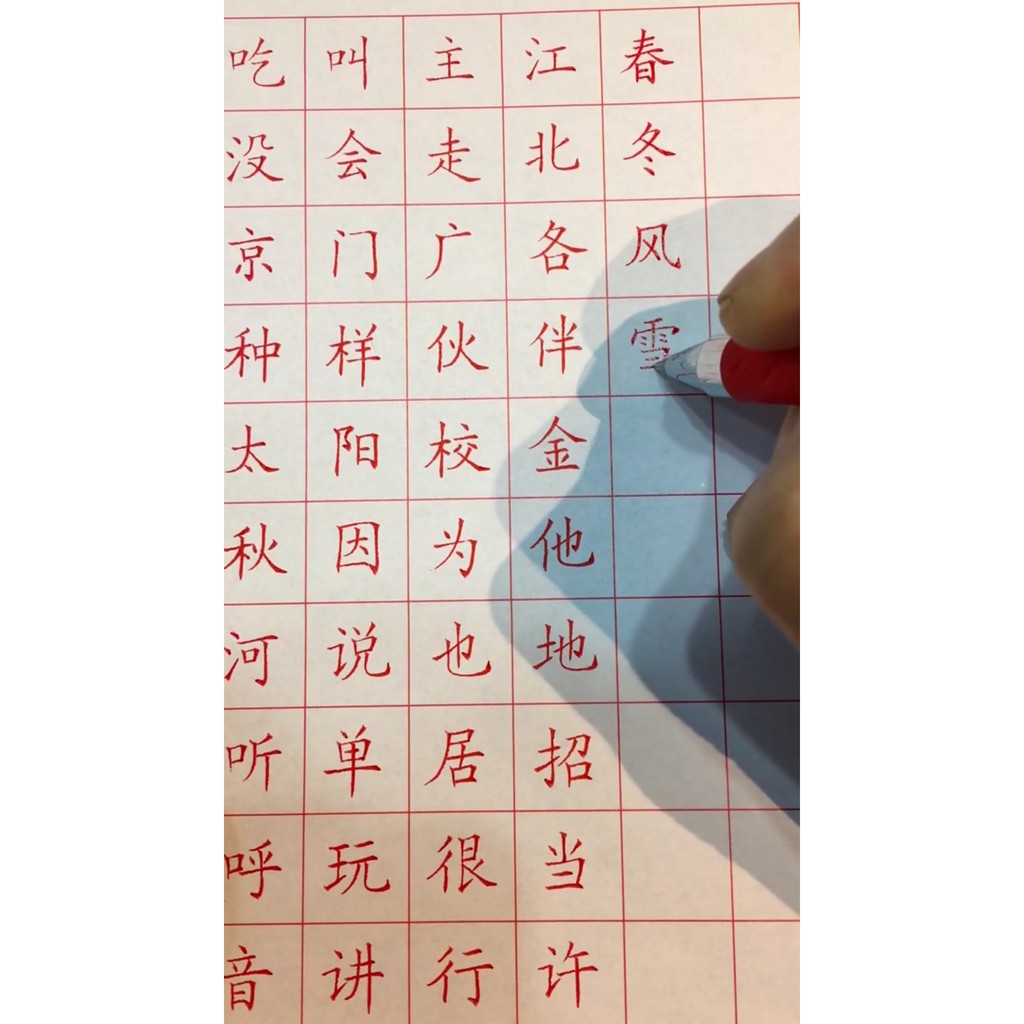 吃叫主江春
没会走北冬
京门广各风
种样伙伴雪
太阳校金
秋因为他
河说也地
听单居招
呼玩很当
音讲行许